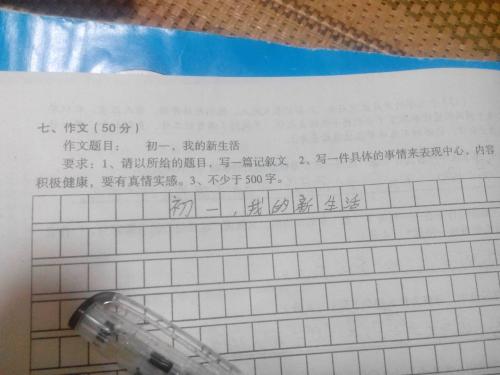 七、作文（50分）
作文题目：　初一，我的新生活
要求：1、请以所给的题目，写一篇记叙文　2、写一件具体的事情来表现中心，内容
积极健康，要有真情实感。3、不少于500字。
初一，我的新生活